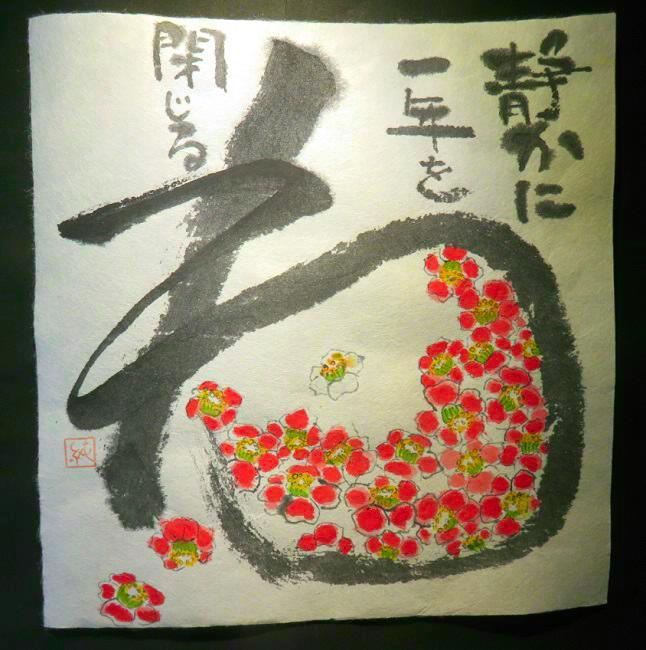 静かに
一年を
閉じる
和